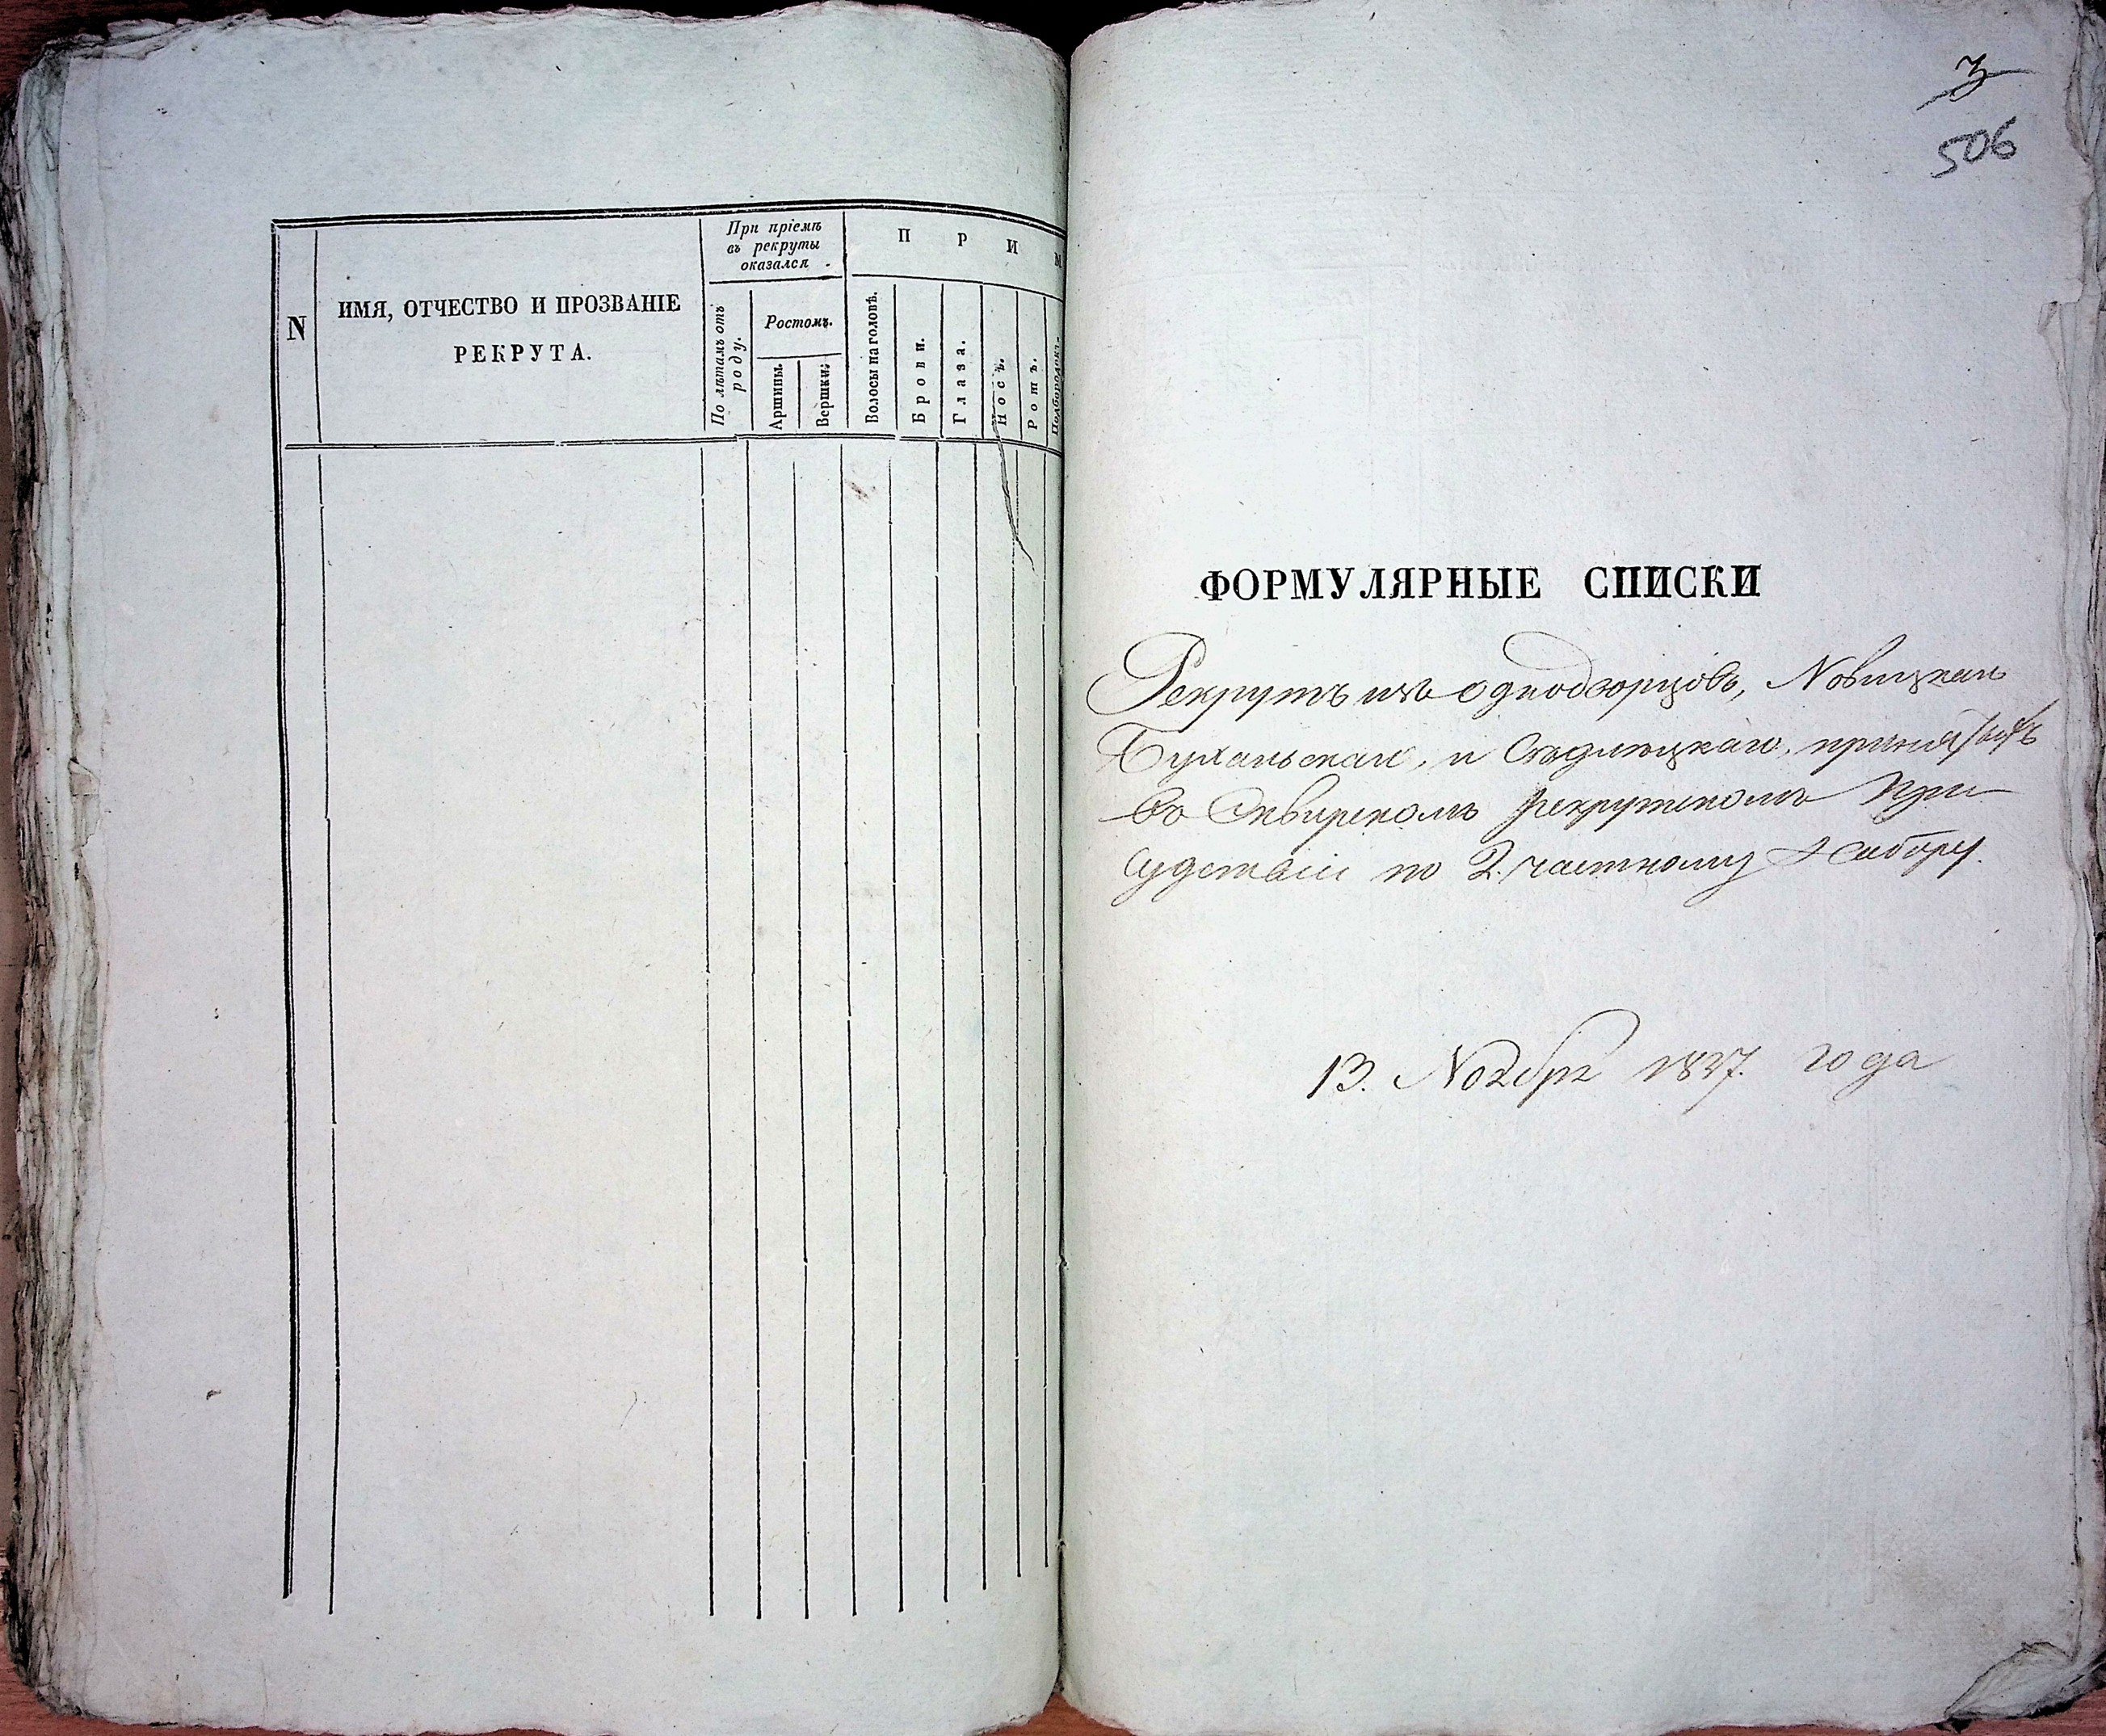 N
ИМЯ, ОТЧЕСТВО И ПРОЗВАНІЕ
РЕКРУТА.
При пріемѣ
въ рекруты
оказался
По лѣтамъ отъ
роду.
Ростомъ.
Аршины.
Вершки.
П Р И М
Волосы на головѣ.
Брови.
Глаза.
Носъ.
Ротъ.
Подбородокъ.
3
506
ФОРМУЛЯРНЫЕ СПИСКИ
Рекрутъ изъ однодворцовъ, Новицкаго
и
въ Сквирскомъ рекрутскомъ При
судствіи по 2. частному Набору.
13. Ноября 1837. года